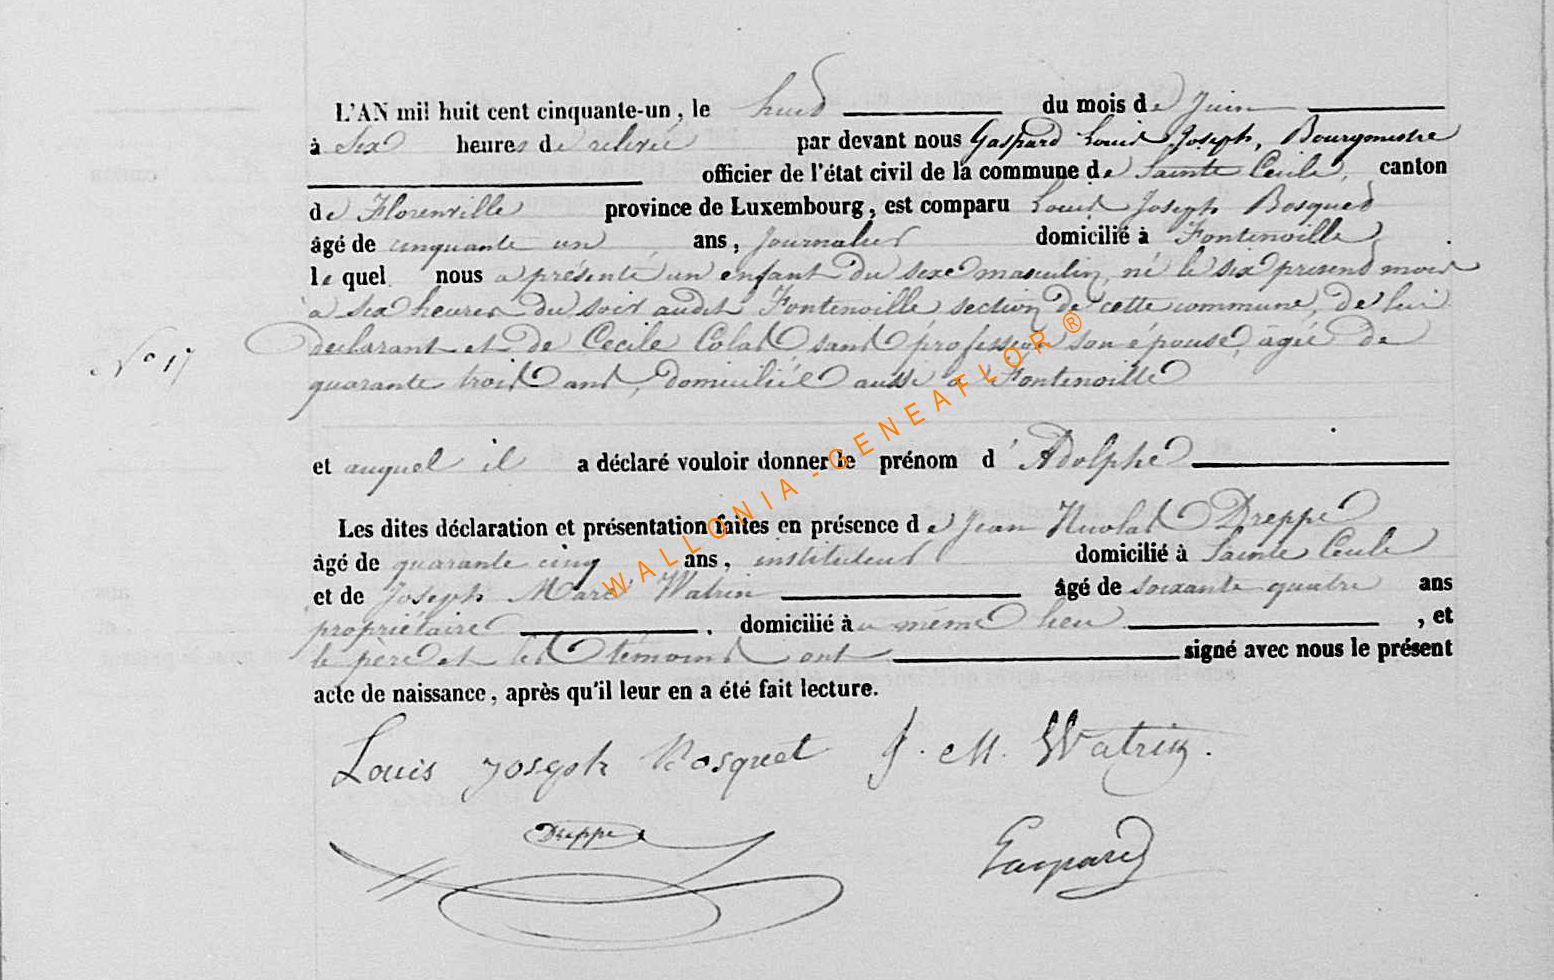 L'AN mil huit cent cinquante-un, le huit du mois de Juin
à Six heures de relevée par devant nous Gaspard Louis Joseph, Bourgmestre
officier de l'état civil de la commune de Sainte Cécile, canton
de Florenville province de Luxembourg, est comparu Louis Joseph Bosquet
âgé de cinquante un ans, Journalier domicilié à Fontenoille
lequel nous a présenté un enfant du sexe masculin, né le six present mois
à six heures du soir audit Fontenoille section de cette commune, de lui
N° 17
declarant et de Cecile Colas sans profession son épouse, agée de
quarante trois ans, domiciliée aussi à Fontenoille
et auquel il a déclaré vouloir donner le prénom d'Adolphe
Les dites déclaration et présentation faites en présence de Jean Nicolas Dreppe
âgé de quarante cinq ans, instituteur domicilié à Sainte Cecile
et de Joseph Marc Watrin âgé de soixante quatre ans
propriétaire, domicilié au même lieu, et
le père et les témoins ont signé avec nous le présent
acte de naissance, après qu'il leur en a été fait lecture.
Louis Joseph Bosquet J. M. Watrin.
Dreppe
Gaspard
WALLONIA-GENEAFLOR®